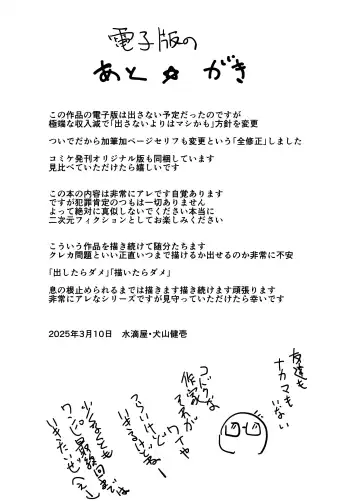 電子版の
あと☆がき
この作品の電子版は出さない予定だったのですが
極端な収入減で「出さないよりはマシかも」方針を変更
ついでだから加筆加ページセリフも変更という「全修正」しました
コミケ発刊オリジナル版も同梱しています
見比べていただけたら嬉しいです
この本の内容は非常にアレです自覚あります
ですが犯罪肯定のつもは一切ありません
よって絶対に真似しないでください本当に
二次元フィクションとしてお楽しみください
こういう作品を描き続けて随分たちます
クレカ問題といい正直いつまで描けるか出せるのか非常に不安
「出したらダメ」「描いたらダメ」
息の根止められるまでは描きます描き続けます頑張ります
非常にアレなシリーズですが見守っていただけたら幸いです
2025年3月10日　水滴屋・犬山健壱
友達も
ナカマも
いない
コドクな
作家
ですが
つらいけど
いきるけどねー
少なくとも
ワンピ最終回までは
いきたいぜ